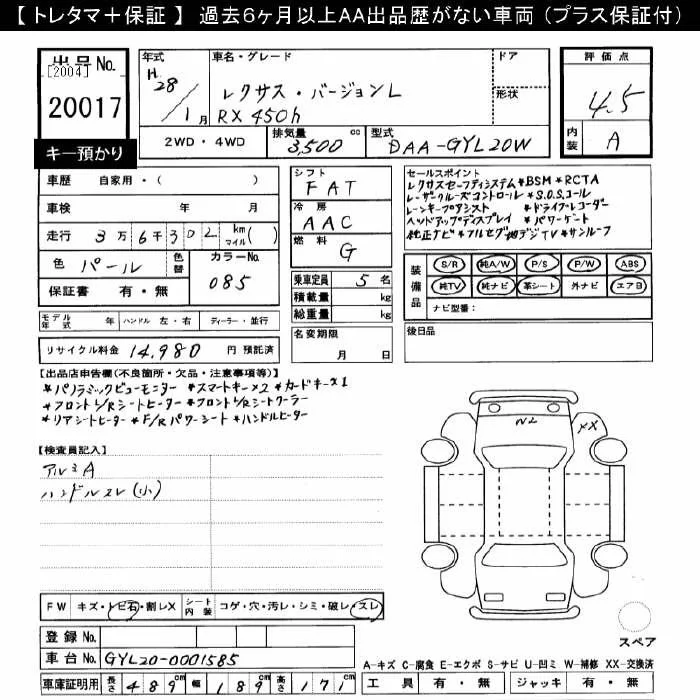 【トレタマ＋保証】 過去6ヶ月以上AA出品歴がない車両（プラス保証付）
出品No.
[2004]
20017
キー預かり
年式
H 28 / 1月
車名・グレード
レクサス・バージョンL
RX450h
ドア
形状
評価点
4.5
内装
A
2WD・4WD
排気量
3,500 cc
型式
DAA-GYL20W
車歴 自家用・( )
車検 年 月
走行 3万6千302 km マイル( )
色 パール 色替
カラーNo.
085
保証書 有・無
シフト
FAT
冷房
AAC
燃料
G
乗車定員 5名
積載量 kg
総重量 kg
セールスポイント
レクサスセーフティシステム*BSM*RCTA
レーザークルーズコントロール*S.O.Sコール
レーンキープアシスト *ドライブレコーダー
ヘッドアップディスプレイ *パワーゲート
純正ナビ*フルセグ地デジTV*サンルーフ
装備品
S/R 純A/W P/S P/W ABS
純TV 純ナビ 革シート 外ナビ エアB
ナビ型番：
モデル年式 年 ハンドル 左・右 ディーラー・並行
名変期限
月 日
後日品
リサイクル料金 14,980 円 預託済
【出品店申告欄(不良箇所・欠品・注意事項等)】
*パノラミックビューモニター *スマートキー×2 *カードキー×1
*フロントL/Rシートヒーター *フロントL/Rシートクーラー
*リアシートヒーター *F/Rパワーシート *ハンドルヒーター
【検査員記入】
アルミA
ハンドルスレ(小)
W2
XX
FW キズ・トビ石・割レX
シート内装 コゲ・穴・汚レ・シミ・破レ・スレ
登録No.
車台No. GYL20-0001585
スペア
A-キズ C-腐食 E-エクボ S-サビ U-凹ミ W-補修 XX-交換済
車庫証明用 長さ 489cm 幅 189cm 高さ 171cm
工具 有・無 ジャッキ 有・無